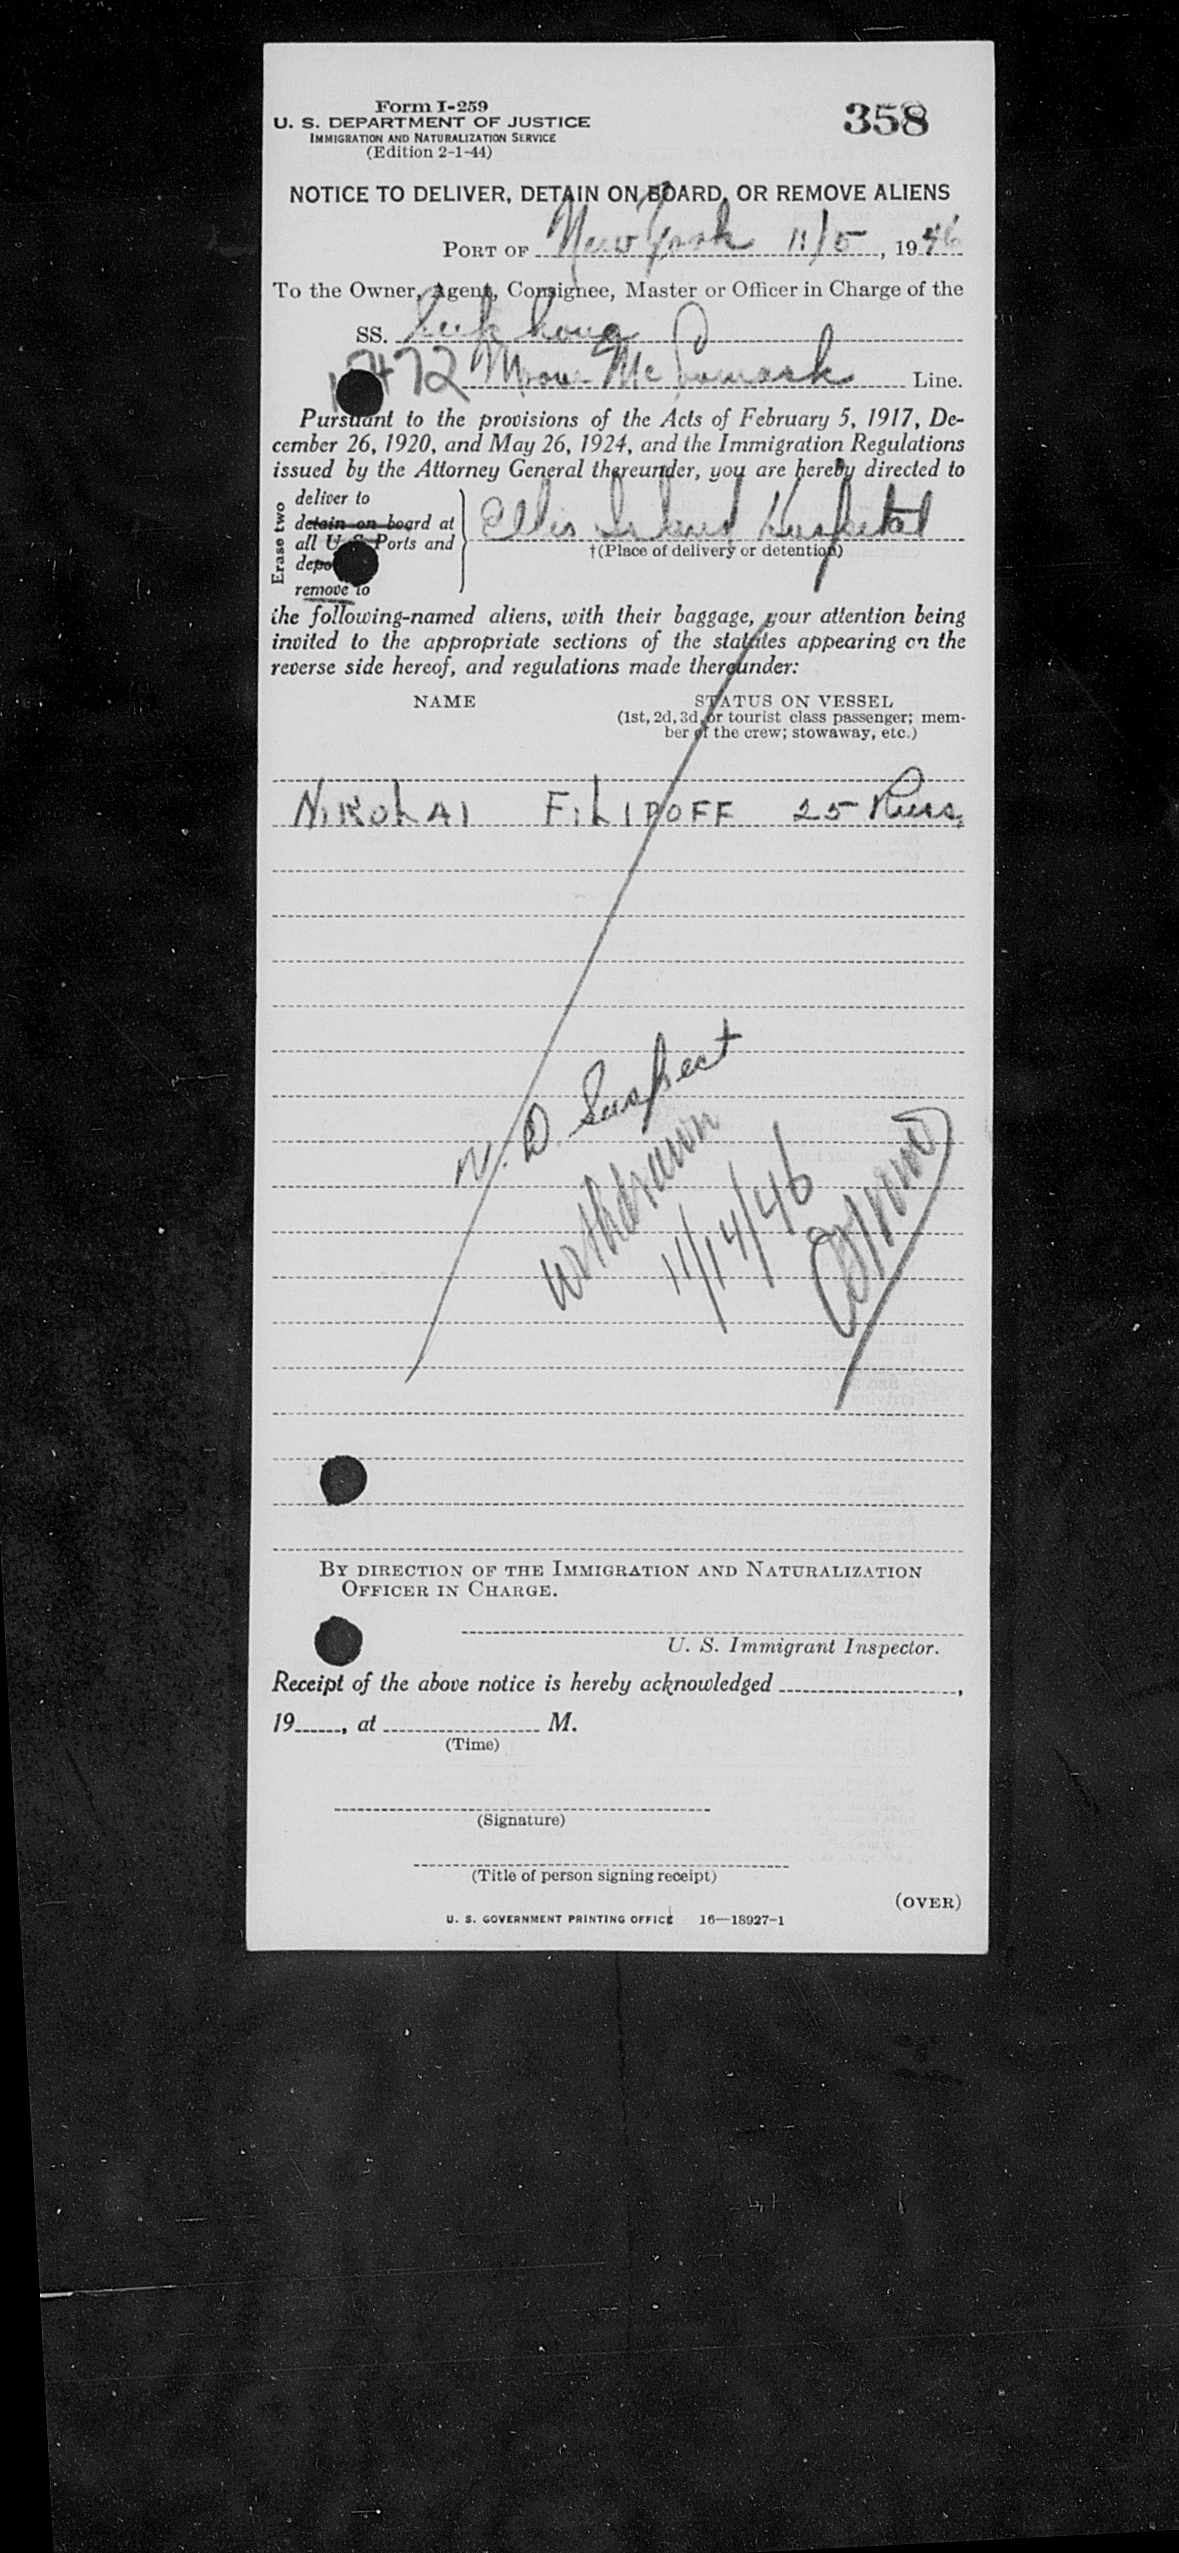 Form I-259
358
U. S. DEPARTMENT OF JUSTICE
IMMIGRATION AND NATURALIZATION SERVICE
(Edition 2-1-44)
NOTICE TO DELIVER, DETAIN ON BOARD, OR REMOVE ALIENS
PORT OF New York 11/5, 1946
To the Owner, Agent, Consignee, Master or Officer in Charge of the
SS.
472 Line.
Pursuant to the provisions of the Acts of February 5, 1917, De-
cember 26, 1920, and May 26, 1924, and the Immigration Regulations
issued by the Attorney General thereunder, you are hereby directed to
Erase two
deliver to
detain on board at
all U. S. Ports and
remove to
Ellis Island Hospital
†(Place of delivery or detention)
the following-named aliens, with their baggage, your attention being
invited to the appropriate sections of the statutes appearing on the
reverse side hereof, and regulations made thereunder:
NAME
STATUS ON VESSEL
(1st, 2d, 3d, or tourist class passenger; mem-
ber of the crew; stowaway, etc.)
NIKOLAI FILIPOFF 25 Russ.
V. D. Suspect
withdrawn
11/14/46
BY DIRECTION OF THE IMMIGRATION AND NATURALIZATION
OFFICER IN CHARGE.
U. S. Immigrant Inspector.
Receipt of the above notice is hereby acknowledged ,
19 , at M.
(Time)
(Signature)
(Title of person signing receipt)
(OVER)
U. S. GOVERNMENT PRINTING OFFICE 16—18927-1